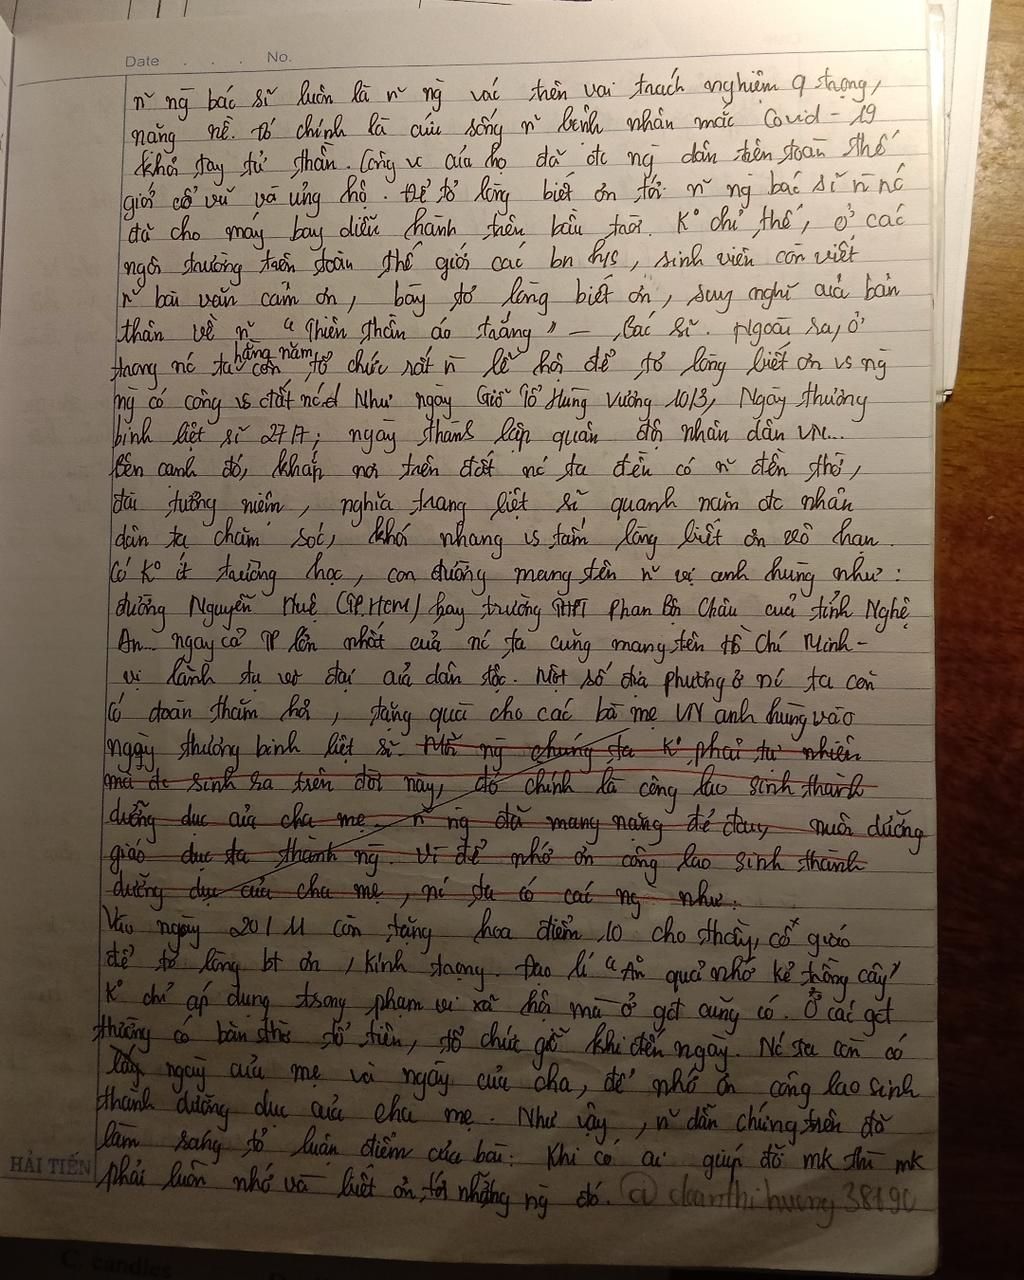 Date . . . No.
n~ ng bác sĩ luôn là n~ ng vác trên vai trách nghiệm q trọng,
nặng nề. Đó chính là cứu sống n~ bệnh nhân mắc Covid-19
khỏi tay tử thần. Công vc của họ đã đc ng dân trên toàn thế
giới cổ vũ và ủng hộ. Để tỏ lòng biết ơn tới n~ ng bác sĩ n` nc
đã cho máy bay diễu hành trên bầu trời. K° chỉ thế, ở các
ngôi trường trên toàn thế giới các bn hs, sinh viên còn viết
n~ bài văn cảm ơn, bày tỏ lòng biết ơn, suy nghĩ của bản
thân về n~ "Thiên thần áo trắng" - Bác sĩ. Ngoài ra, ở
trong nc ta hằng năm còn tổ chức rất n` lễ hội để tỏ lòng biết ơn vs ng
ng có công vs đất nc Như ngày Giỗ Tổ Hùng Vương 10/3, Ngày thương
binh liệt sĩ 27/7; ngày thành lập quân đội nhân dân VN...
Bên cạnh đó, khắp nơi trên đất nc ta đều có n~ đền thờ,
đài tưởng niệm, nghĩa trang liệt sĩ quanh năm đc nhân
dân ta chăm sóc, khói nhang vs tấm lòng biết ơn vô hạn.
Có K° ít trường học, con đường mang tên n~ vị anh hùng như:
đường Nguyễn Huệ (TP.HCM) hay trường THPT Phan Bội Châu của tỉnh Nghệ
An... ngay cả TP lớn nhất của nc ta cũng mang tên Hồ Chí Minh -
vị lãnh tụ vĩ đại của dân tộc. Một số địa phương ở nc ta còn
có đoàn thăm hỏi, tặng quà cho các bà mẹ VN anh hùng vào
ngày thương binh liệt sĩ. Mỗi ng chúng ta K° phải tự nhiên
mà đc sinh ra trên đời này, đó chính là công lao sinh thành
dưỡng dục của cha mẹ. n~ ng đã mang nặng đẻ đau, nuôi dưỡng
giáo dục ta thành ng. Vì để nhớ ơn công lao sinh thành
dưỡng dục của cha mẹ, nc ta có các ng` như:
Vào ngày 20/11 còn tặng hoa điểm 10 cho thầy, cô giáo
để tỏ lòng bt ơn, kính trọng. Đạo lí "Ăn quả nhớ kẻ trồng cây"
K° chỉ áp dụng trong phạm vi xã hội mà ở gđ cũng có. Ở các gđ
thường có bàn thờ tổ tiên, tổ chức giỗ khi đến ngày. Nc ta còn có
ngày của mẹ và ngày của cha, để nhớ ơn công lao sinh
thành dưỡng dục của cha mẹ. Như vậy, n~ dẫn chứng trên đã
làm sáng tỏ luận điểm của bài: Khi có ai giúp đỡ mk thì mk
phải luôn nhớ và biết ơn tới những ng đó. @doanthihuong38190
HẢI TIẾN
C. candies